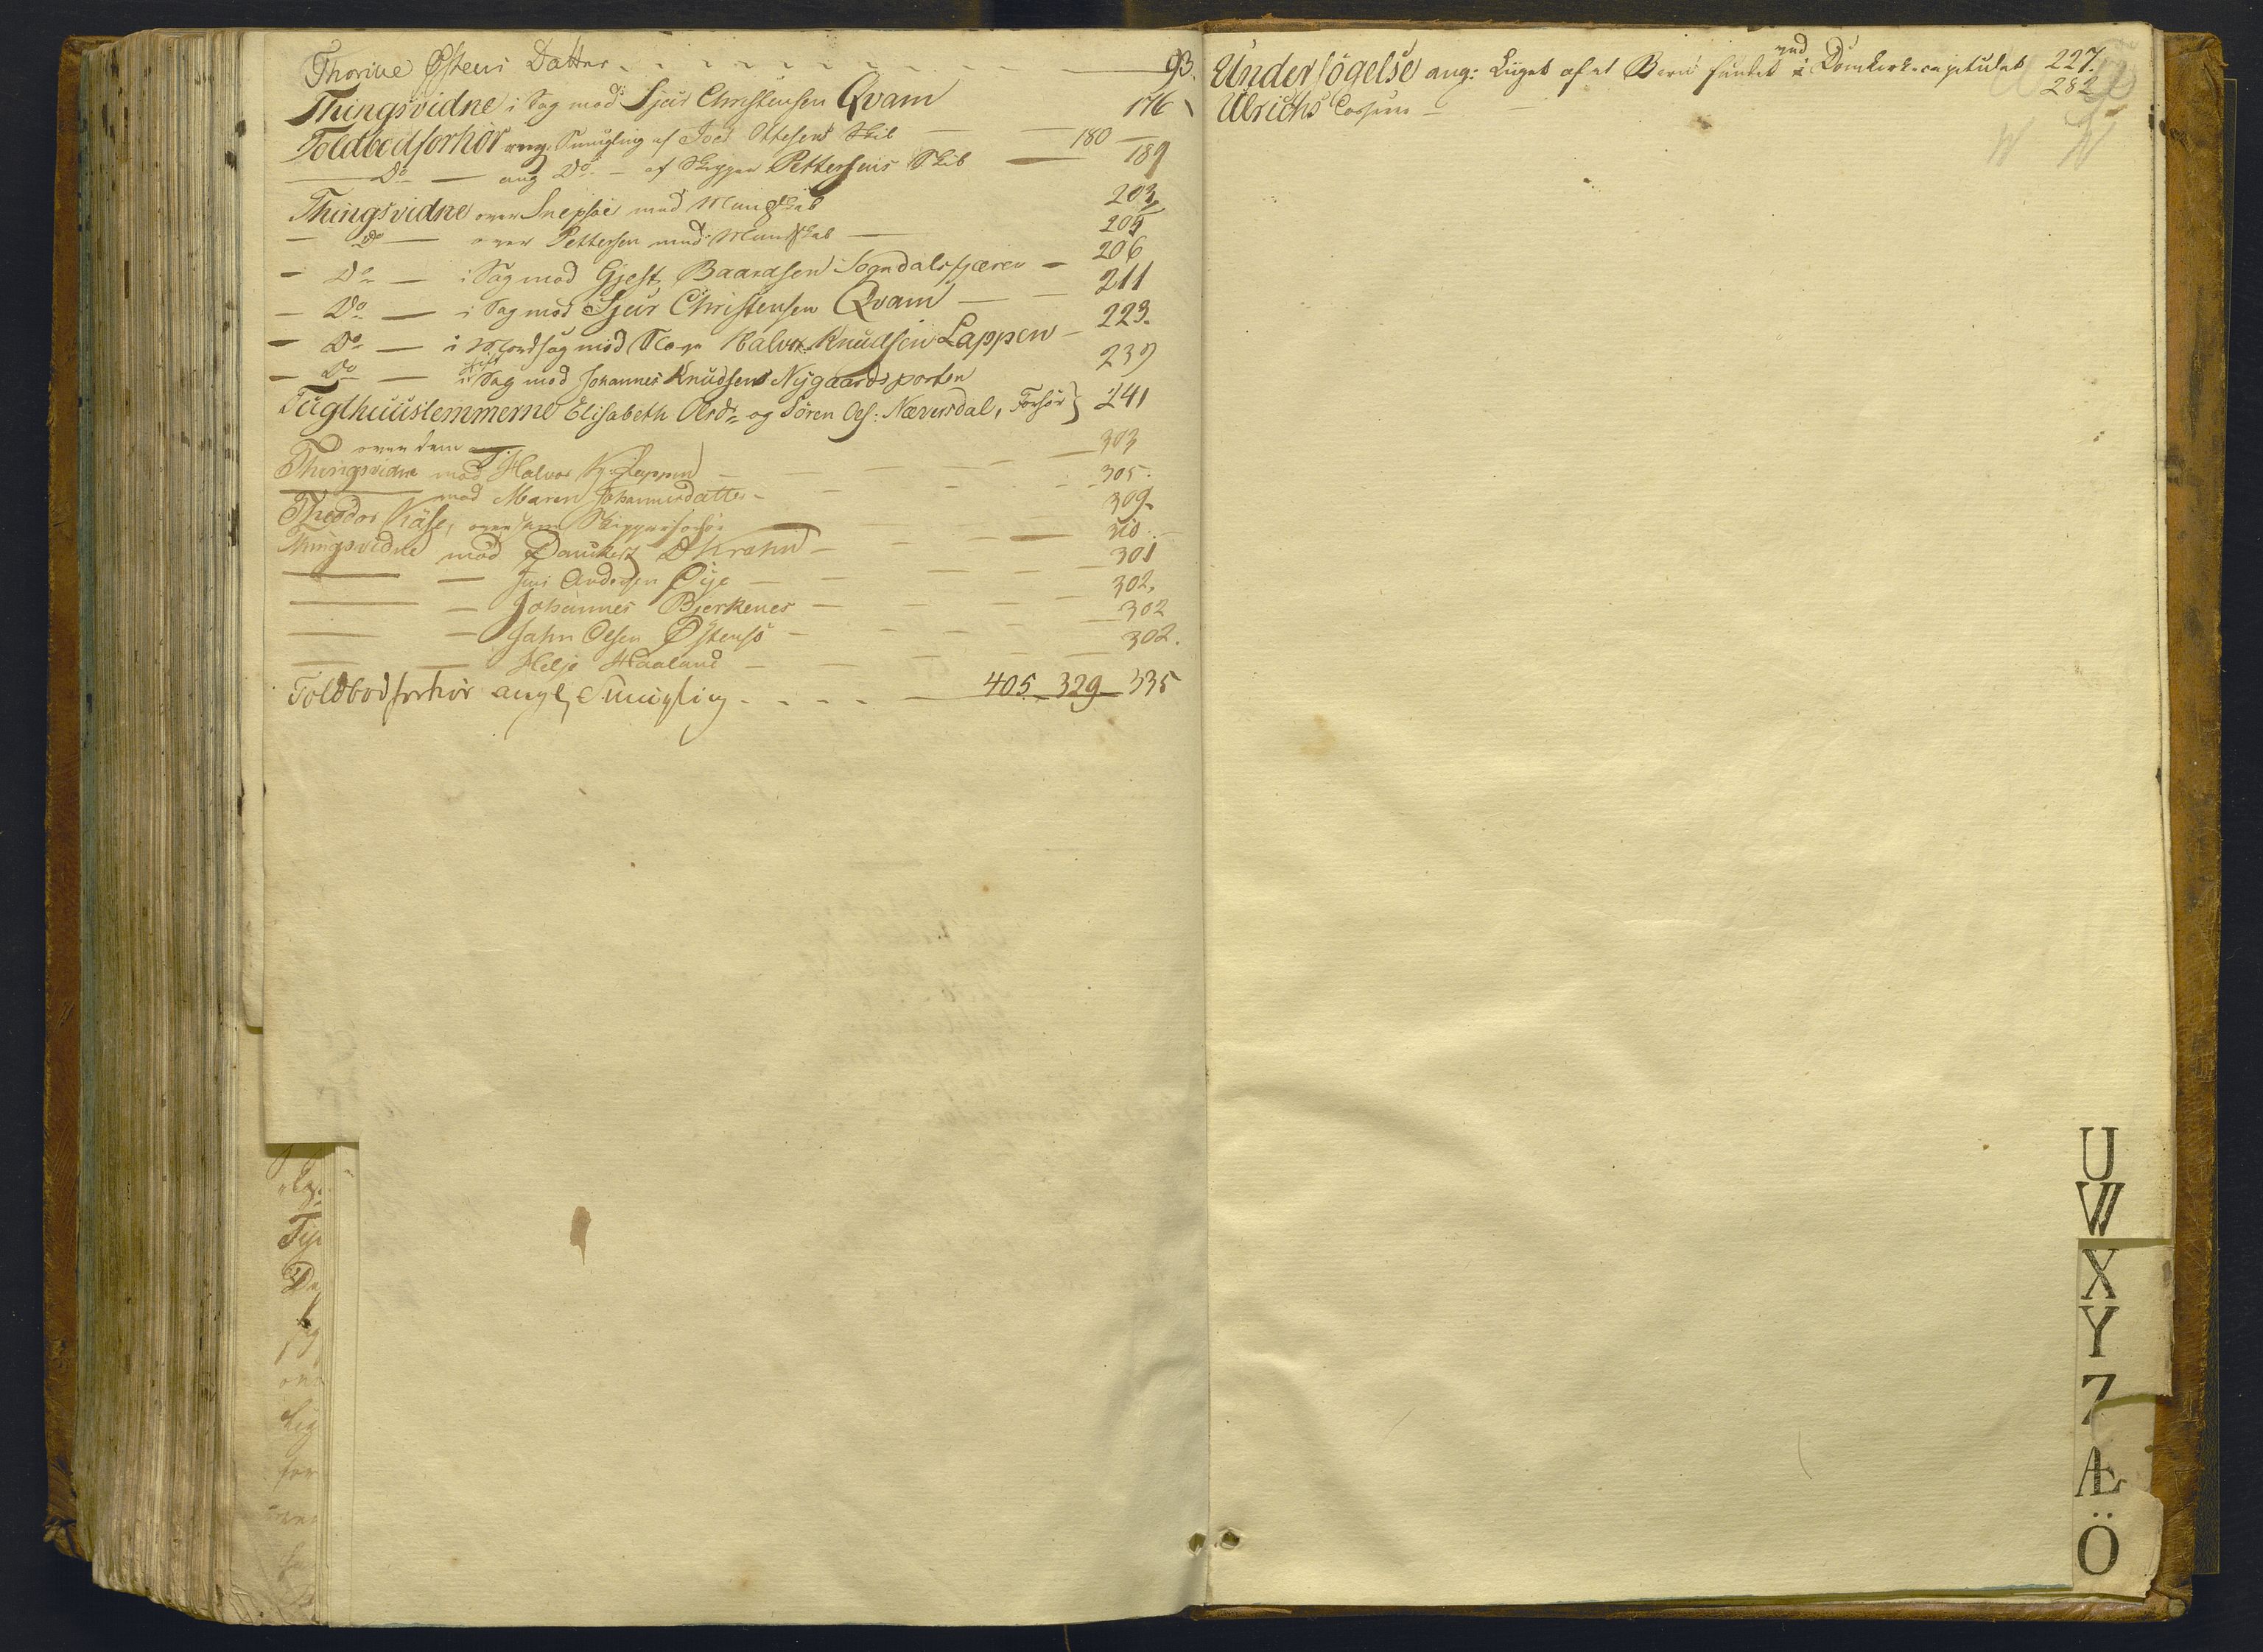 Thorine Østens Datter 93.
Thingsvidne i Sag mod Sjur Christensen Qvam 176
Toldbodforhör ang. Smugling af Ottesens Skib 180
Do ang Do af Skipper Pettersens Skib 189
Thingsvidne over Snepsöe med Mandskab 203
Do over Pettersen med Mandskab 205
Do i Sag mod Gjest Baardsen Sogndalsfjæren 206
Do i Sag mod Sjur Christensen Qvam 211
Do i Mordsag mod Halvor Knudsen Lappen 223.
Do i Sag mod Johannes Knudsen Nygaardsporten 239
Tugthuuslemmerne Elisabeth Olsdr og Sören Ols: Næversdal, Forhör 241
over dem
Thingsvidne mod Halvor K. Lappen 303
mod Maren Johannesdatter 305.
Theodor Käse, Skipperforhör 309.
Thingsvidne mod Danckert D Krohn 310
Jens Andersen Øye 301
Johannes Bjerkenes 302.
John Olsen Østensö 302
Helje Haaland 302.
Toldbodforhör angl. Smugling 405 329 335
Undersögelse ang: Liiget af et Barn fundet ved Domkirkecapitulet 227.
Ulrichs 282
W W
U
W
X
Y
Z
Æ
Ö